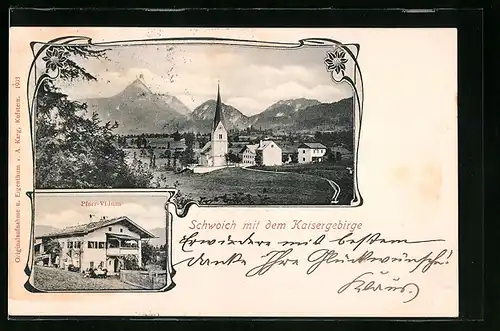 Originalaufnahme u. Eigenthum v. A. Karg, Kufstein.
Pfarr-Vidum
Schwoich mit dem Kaisergebirge
Erwiedere mit bestem
danke Ihre Glückwünsche!
Klaus.